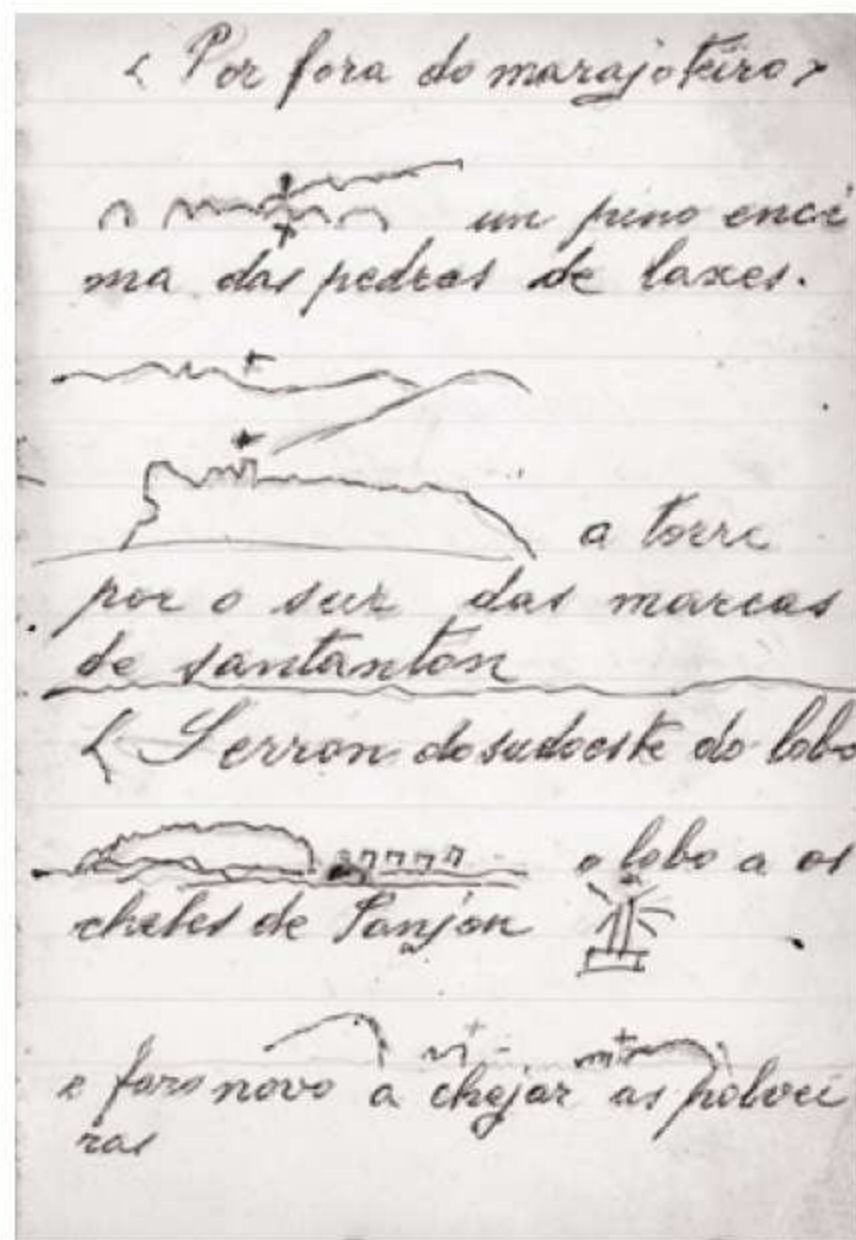 < Por fora do marajoteiro >
un pino enci
ma das pedras de laxes.
a torre
por o sur das marcas
de santanton
< Serron do sudoeste do lobo
o lobo a os
chales de Sanjan
e faro novo a chejar as polvei
ras